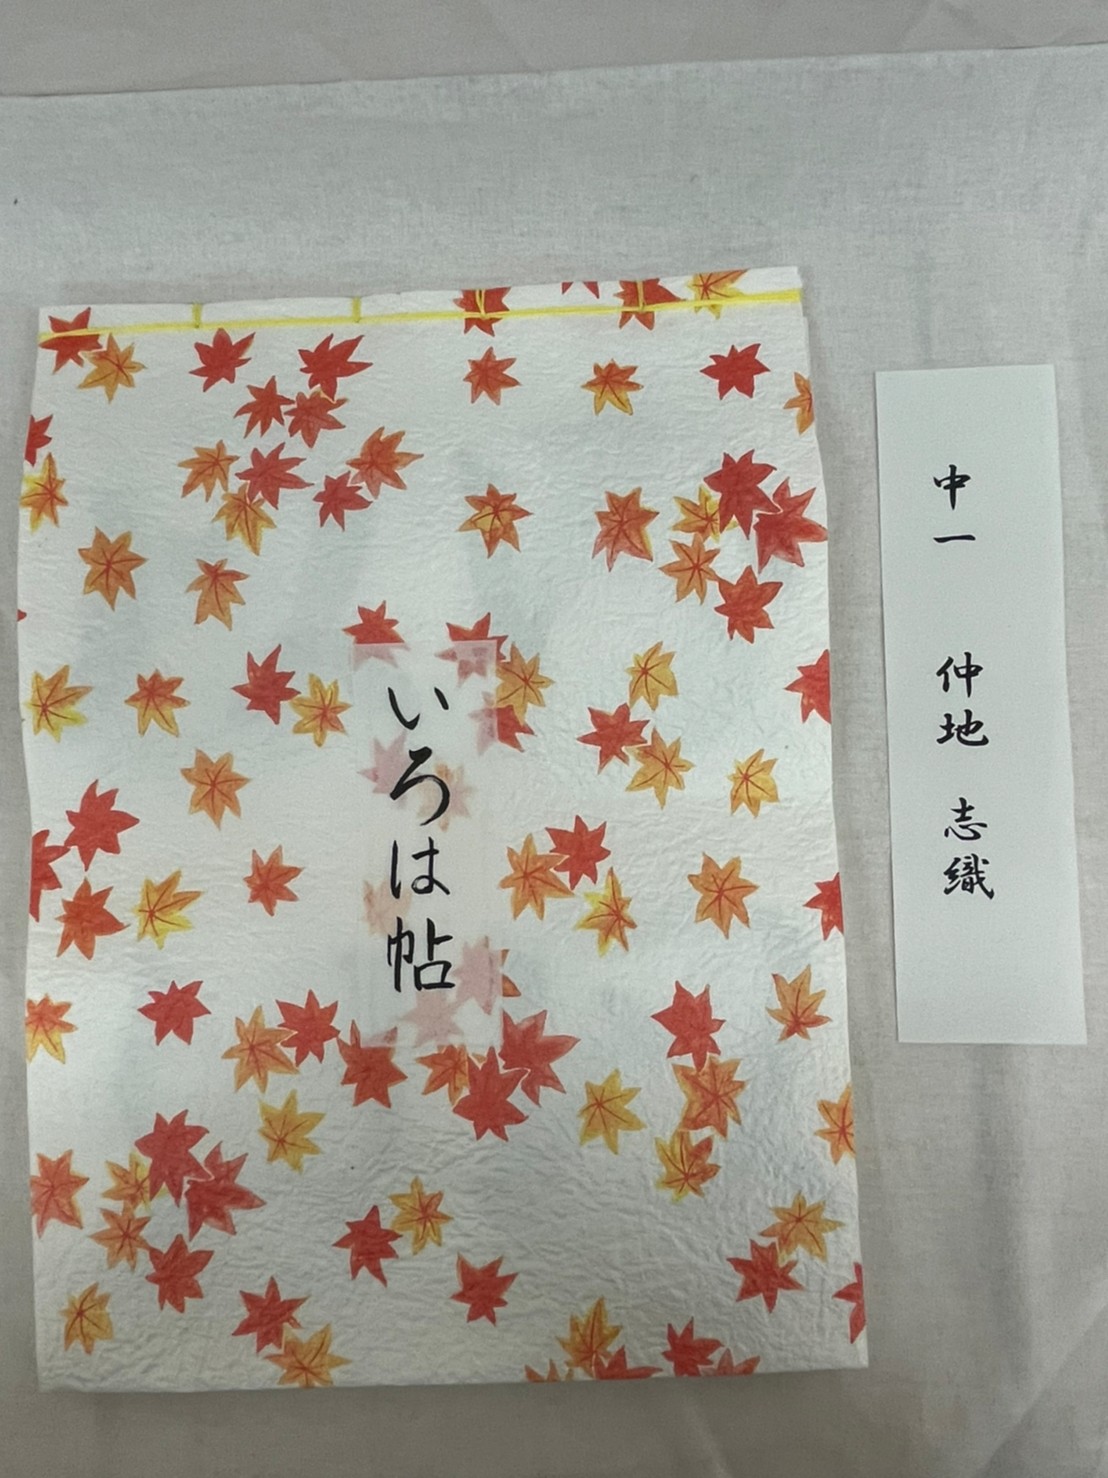 いろは帖
中一 仲地 志織